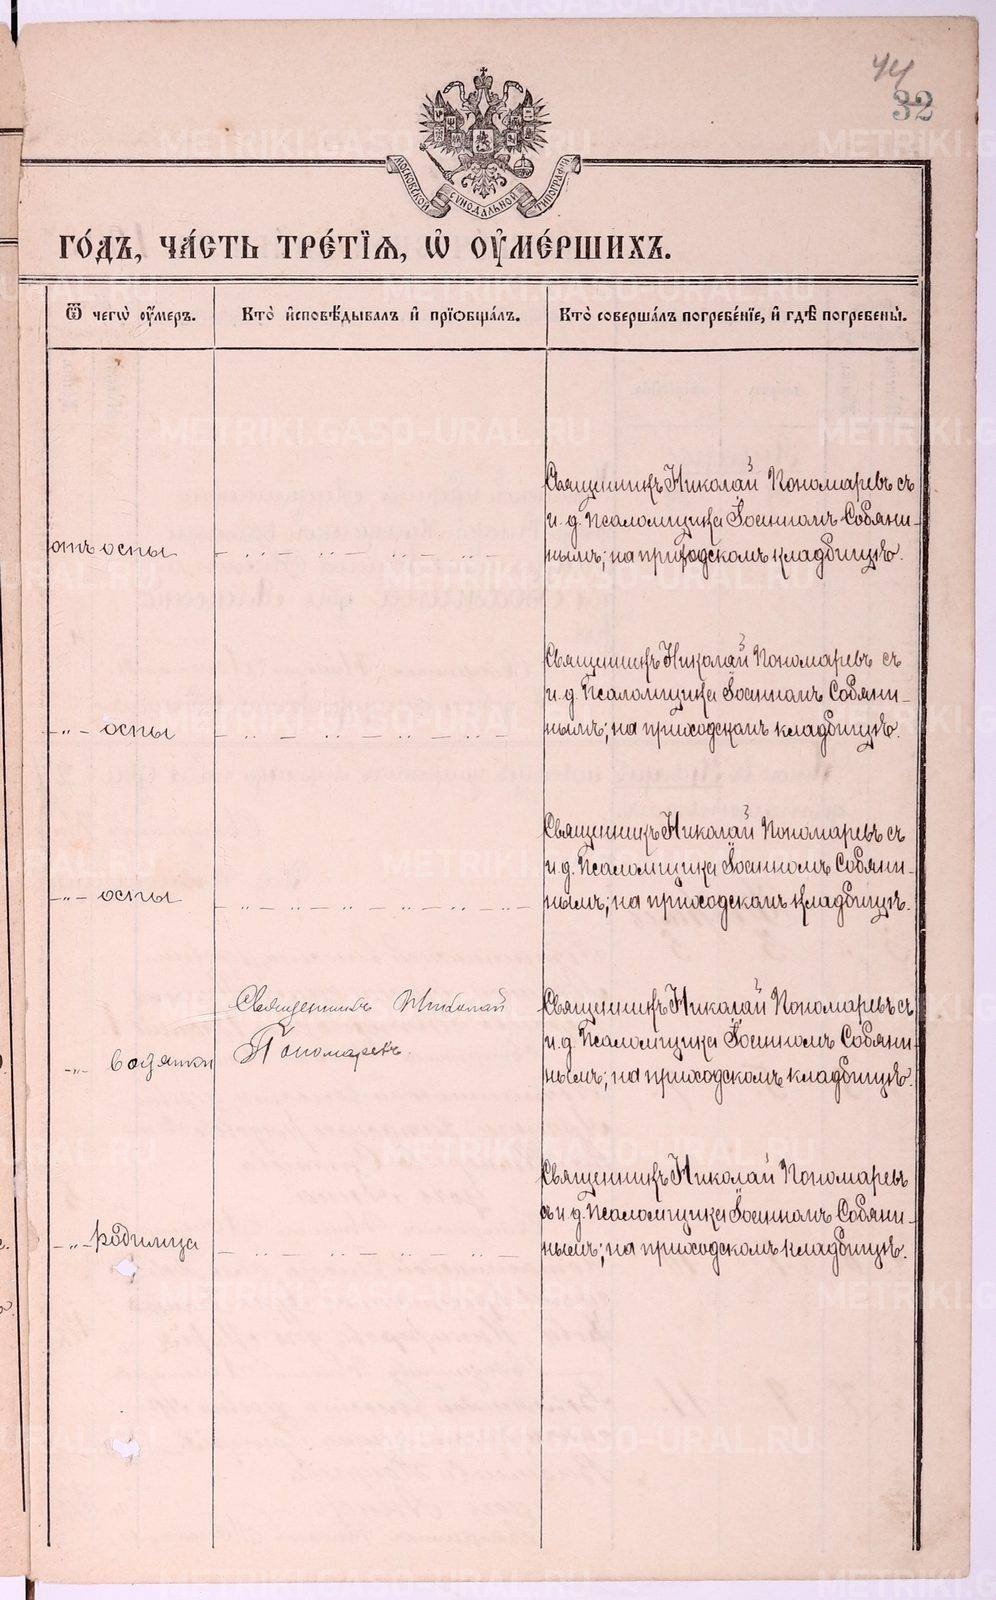 44
32
МОСКОВСКОЙ СѴНОДАЛЬНОЙ ТИПОГРАФІИ
ГО́ДЪ, ЧА́СТЬ ТРЕ́ТІѦ, Ѡ҆ ОУ҆МЕ́РШИХЪ.
Ѿ чегѡ̀ оу҆́меръ.
Кто̀ и҆сповѣ́дывалъ и҆ прїѻбща́лъ.
Кто̀ соверша́лъ погребе́нїе, и҆ гдѣ̀ погребены̀.
Священникъ Николай Пономаревъ съ
и. д. Псаломщика Іоанномъ Собяни-
отъ оспы
нымъ; на приходскомъ кладбищѣ.
Священникъ Николай Пономаревъ съ
и. д. Псаломщика Іоанномъ Собяни-
-„- оспы
нымъ; на приходскомъ кладбищѣ.
Священникъ Николай Пономаревъ съ
и. д. Псаломщика Іоанномъ Собяни-
-„- оспы
нымъ; на приходскомъ кладбищѣ.
Священникъ Николай
Священникъ Николай Пономаревъ съ
-„- водянки
Пономаревъ.
и. д. Псаломщика Іоанномъ Собяни-
нымъ; на приходскомъ кладбищѣ.
Священникъ Николай Пономаревъ
съ и. д. Псаломщика Іоанномъ Собяни-
-„- родимца
нымъ; на приходскомъ кладбищѣ.
METRIKI.GASO-URAL.RU